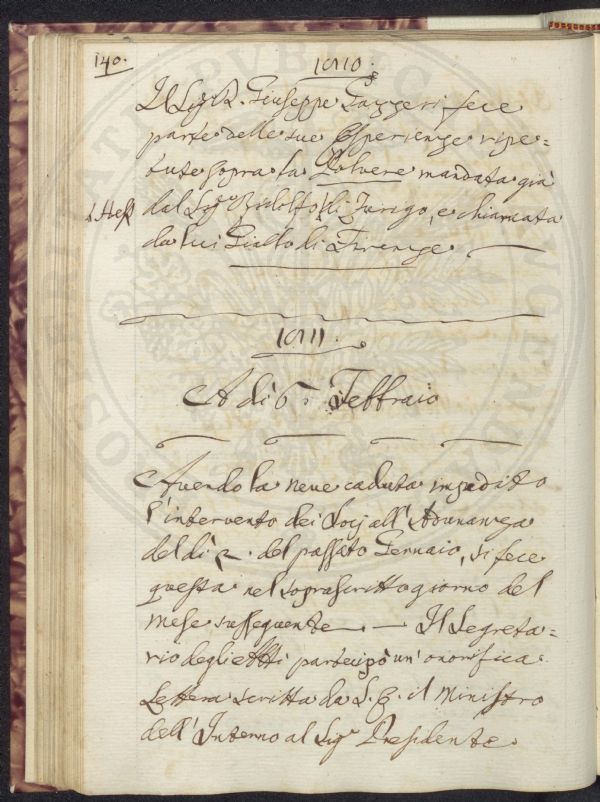 140.
1810.
Il Sig.r D. Giuseppe Gazzeri fece
parte delle sue Esperienze ripe=
tute sopra la Polvere mandata già
dal Sig.r Ridolfo di Zurigo, e chiamata
da lui Giallo di Firenze.
1811.
A dì 6. Febbraio
Avendo la neve caduta impedito
l'intervento dei Socj all'Adunanza
del dì 2. del passato Gennaio, si fece
questa nel soprascritto giorno del
mese susseguente. — Il Segreta=
rio degli Atti partecipò un'onorifica
Lettera scritta da S. E. il Ministro
dell'Interno al Sig.r Presidente
PROSPERITATI PUBLICAE AUGENDAE